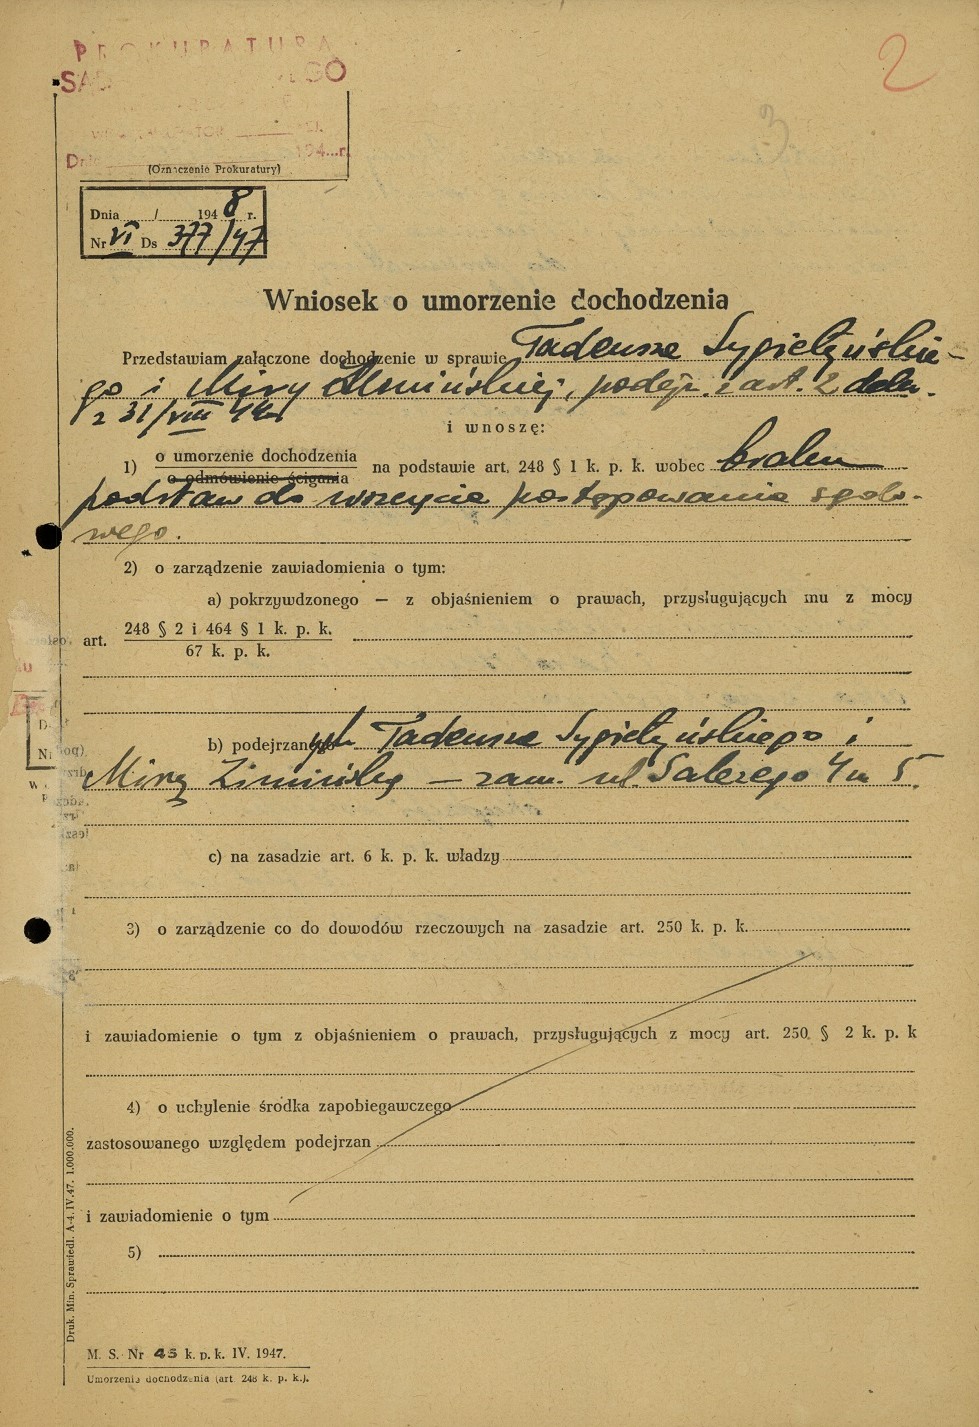 PROKURATURA
2
3
Dnia 194 r.
(Oznaczenie Prokuratury)
Dnia / 1948 r.
Nr VI Ds 377/47
Wniosek o umorzenie dochodzenia
Przedstawiam załączone dochodzenie w sprawie Tadeusza Sygietyńskie-
go i Miry Zimińskiej, podejr. z art. 2 dekr.
z 31/VIII 44r
i wnoszę:
1) o umorzenie dochodzenia
o odmówienie ścigania
na podstawie art. 248 § 1 k. p. k. wobec braku
podstaw do wszczęcia postępowania sądo-
wego.
2) o zarządzenie zawiadomienia o tym:
a) pokrzywdzonego — z objaśnieniem o prawach, przysługujących mu z mocy
art. 248 § 2 i 464 § 1 k. p. k.
67 k. p. k.
b) podejrzanego ych Tadeusza Sygietyńskiego i
Mirę Zimińską — zam. ul. Salezego 4 m 5.
c) na zasadzie art. 6 k. p. k. władzy
3) o zarządzenie co do dowodów rzeczowych na zasadzie art. 250 k. p. k.
i zawiadomienie o tym z objaśnieniem o prawach, przysługujących z mocy art. 250 § 2 k. p. k
4) o uchylenie środka zapobiegawczego
zastosowanego względem podejrzan
i zawiadomienie o tym
5)
Druk. Min. Sprawiedl. A-4.IV.47. 1.000.000.
M. S. Nr 45 k. p. k. IV. 1947.
Umorzenie dochodzenia (art. 248 k. p. k.).